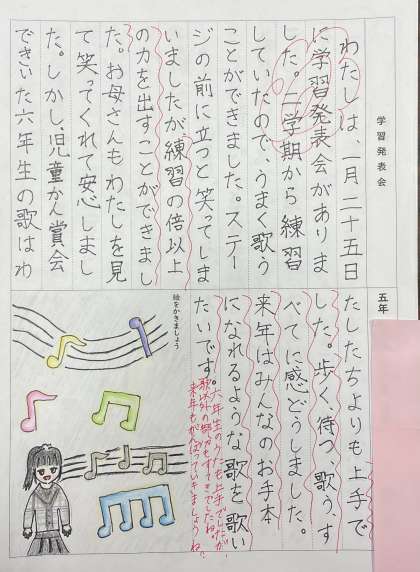 学習発表会
わたしは、一月二十五日
に学習発表会がありま
した。二学期から練習
していたので、うまく歌う
ことができました。ステー
ジの前に立つと笑ってしま
いましたが、練習の倍以上
の力を出すことができまし
た。お母さんもわたしを見
て笑ってくれて安心しまし
た。しかし、児童かん賞会
できいた六年生の歌はわ
五年
たしたちよりも上手で
した。歩く、待つ、歌う、す
べてに感どうしました。
来年はみんなのお手本
になれるような歌を歌い
たいです。
六年生のうたも上手でしたが
歌以外の努力もすてきでしたね。
来年もがんばっていきましょうね。
絵をかきましょう